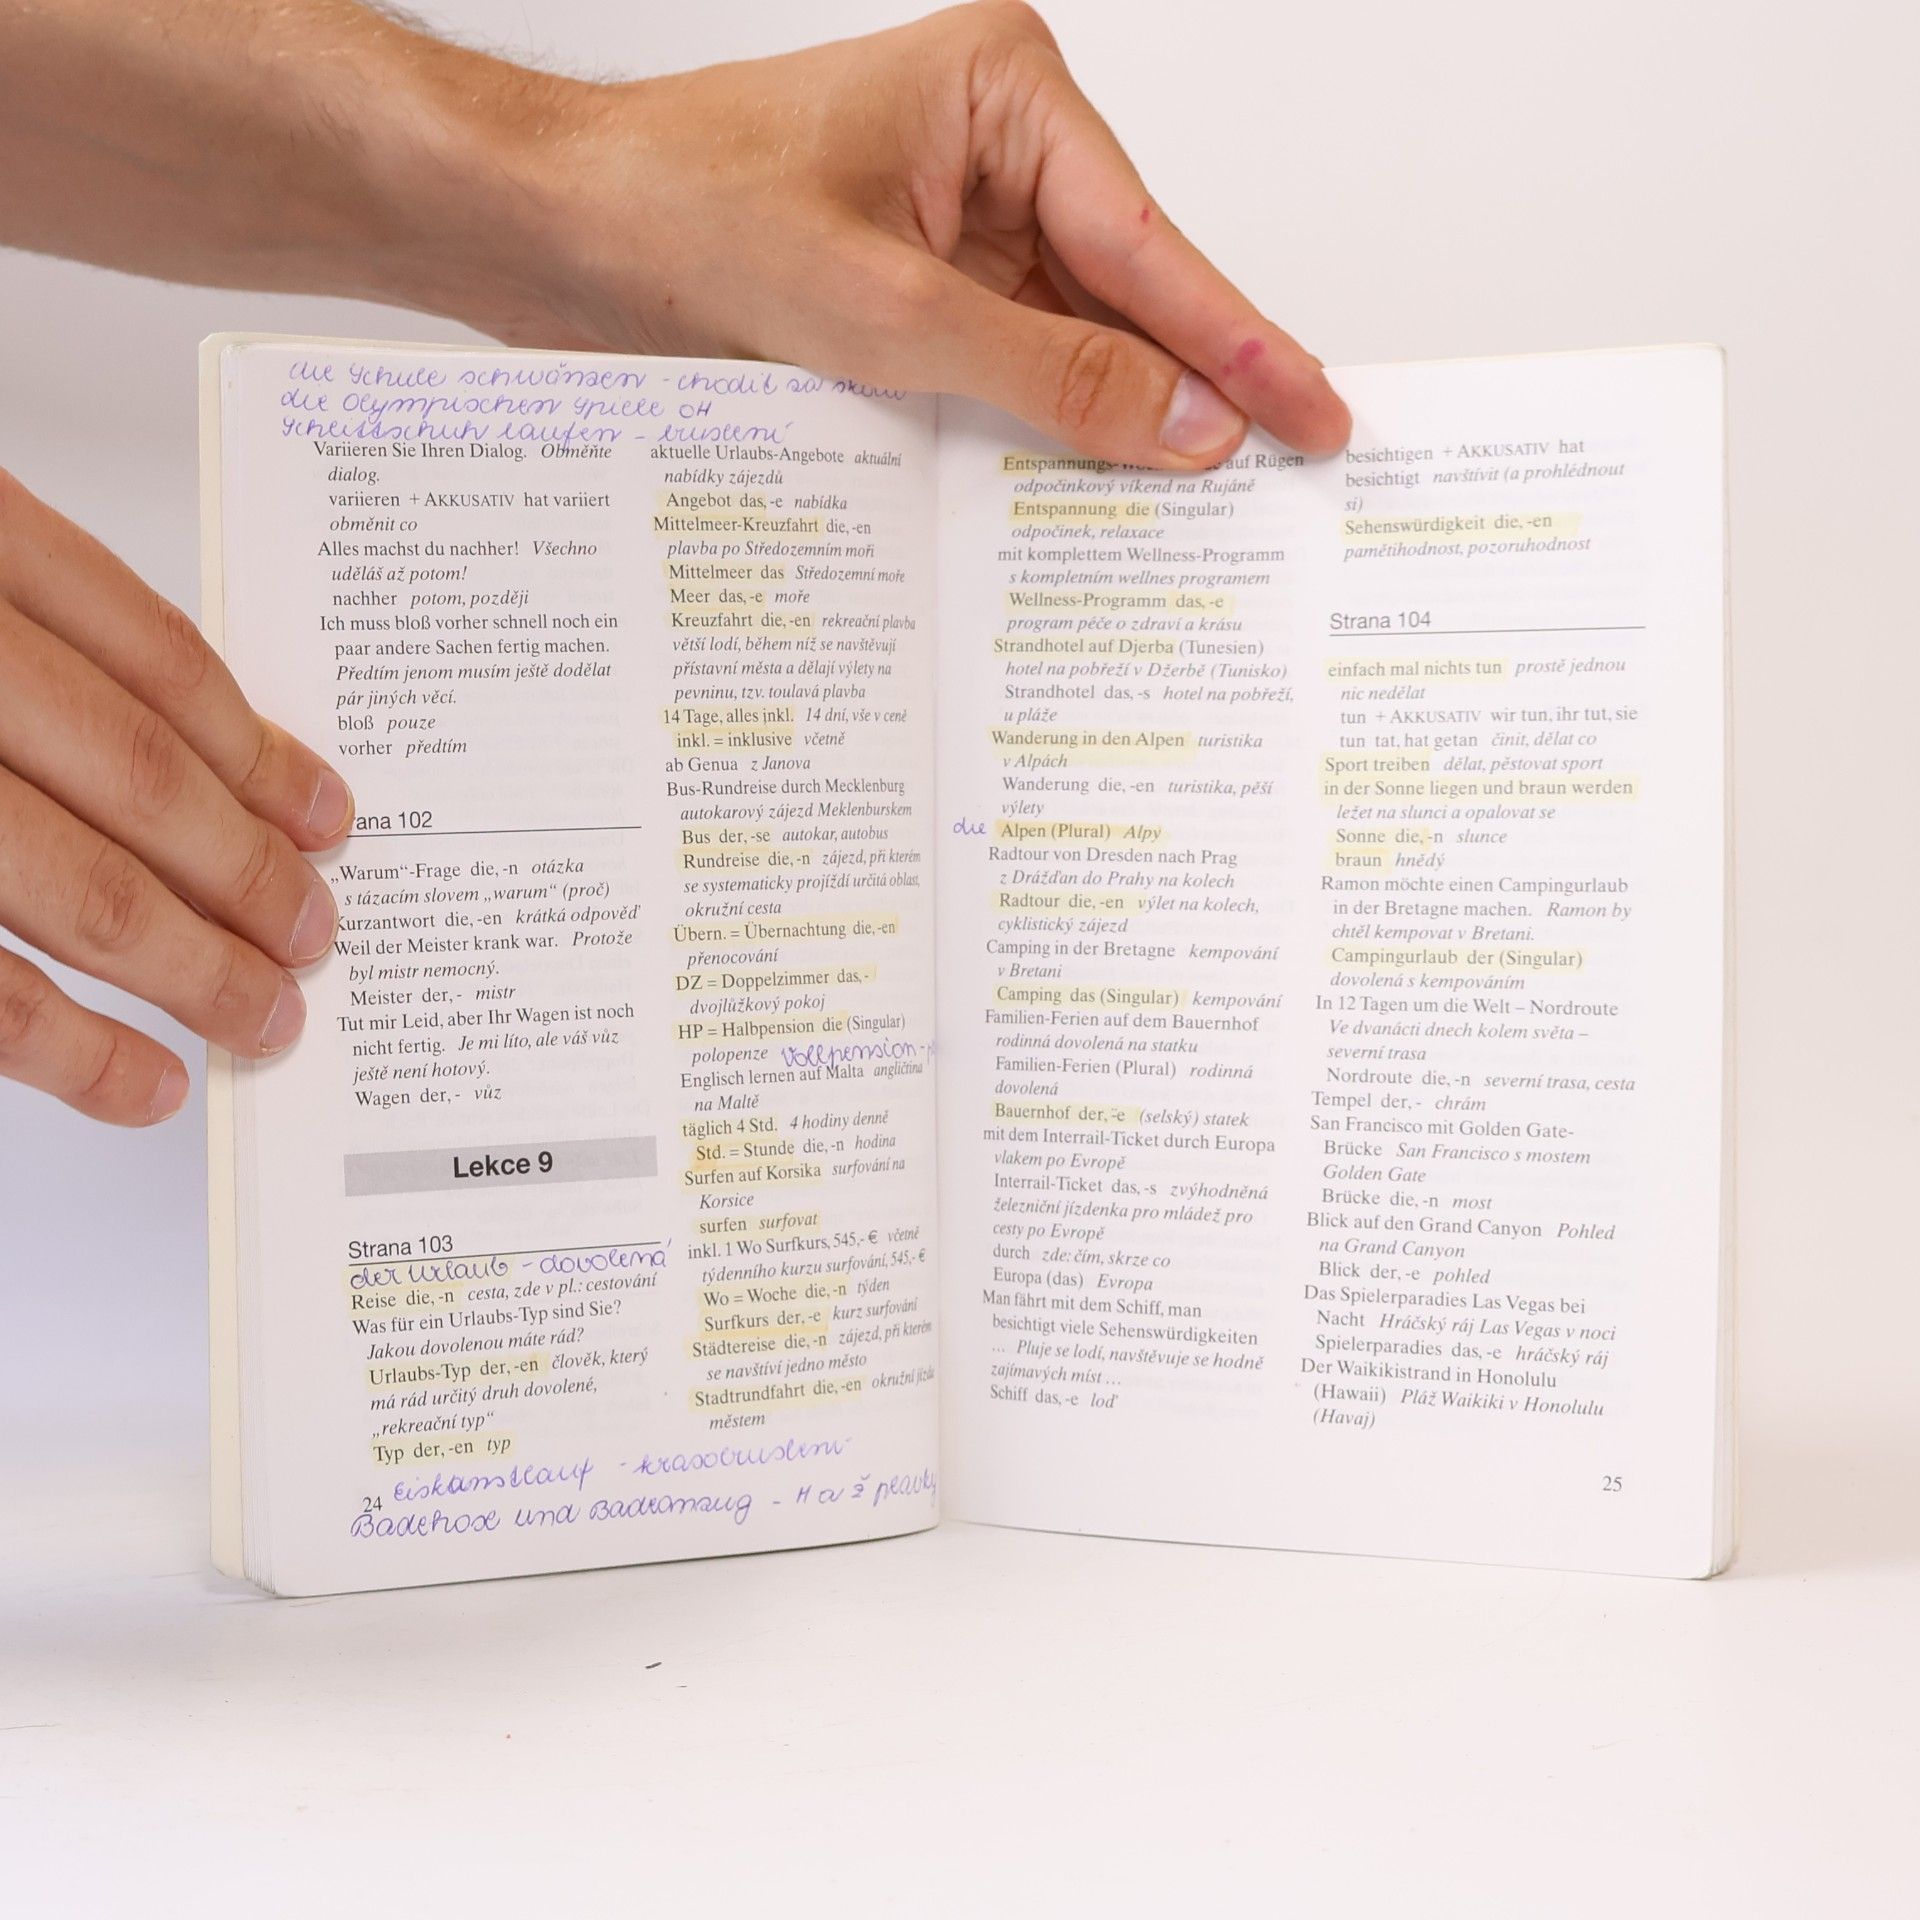 die Schule schwänzen - chodit za
die Olympischen Spiele OH
Schlittschuh laufen - bruslení
Variieren Sie Ihren Dialog. Obměňte
dialog.
variieren + AKKUSATIV hat variiert
obměnit co
Alles machst du nachher! Všechno
uděláš až potom!
nachher potom, později
Ich muss bloß vorher schnell noch ein
paar andere Sachen fertig machen.
Předtím jenom musím ještě dodělat
pár jiných věcí.
bloß pouze
vorher předtím
rana 102
„Warum“-Frage die, -n otázka
s tázacím slovem „warum“ (proč)
Kurzantwort die, -en krátká odpověď
Weil der Meister krank war. Protože
byl mistr nemocný.
Meister der, - mistr
Tut mir Leid, aber Ihr Wagen ist noch
nicht fertig. Je mi líto, ale váš vůz
ještě není hotový.
Wagen der, - vůz
Lekce 9
Strana 103
der Urlaub - dovolená
Reise die, -n cesta, zde v pl.: cestování
Was für ein Urlaubs-Typ sind Sie?
Jakou dovolenou máte rád?
Urlaubs-Typ der, -en člověk, který
má rád určitý druh dovolené,
„rekreační typ“
Typ der, -en typ
aktuelle Urlaubs-Angebote aktuální
nabídky zájezdů
Angebot das, -e nabídka
Mittelmeer-Kreuzfahrt die, -en
plavba po Středozemním moři
Mittelmeer das Středozemní moře
Meer das, -e moře
Kreuzfahrt die, -en rekreační plavba
větší lodí, během níž se navštěvují
přístavní města a dělají výlety na
pevninu, tzv. toulavá plavba
14 Tage, alles inkl. 14 dní, vše v ceně
inkl. = inklusive včetně
ab Genua z Janova
Bus-Rundreise durch Mecklenburg
autokarový zájezd Meklenburskem
Bus der, -se autokar, autobus
Rundreise die, -n zájezd, při kterém
se systematicky projíždí určitá oblast,
okružní cesta
Übern. = Übernachtung die, -en
přenocování
DZ = Doppelzimmer das, -
dvojlůžkový pokoj
HP = Halbpension die (Singular)
polopenze Vollpension -
Englisch lernen auf Malta angličtina
na Maltě
täglich 4 Std. 4 hodiny denně
Std. = Stunde die, -n hodina
Surfen auf Korsika surfování na
Korsice
surfen surfovat
inkl. 1 Wo Surfkurs, 545,- € včetně
týdenního kurzu surfování, 545,- €
Wo = Woche die, -n týden
Surfkurs der, -e kurz surfování
Städtereise die, -n zájezd, při kterém
se navštíví jedno město
Stadtrundfahrt die, -en okružní jízda
městem
24 Eiskunstlauf - krasobruslení
Badehose und Badeanzug - H a ž plavky
Entspannungs- auf Rügen
odpočinkový víkend na Rujáně
Entspannung die (Singular)
odpočinek, relaxace
mit komplettem Wellness-Programm
s kompletním wellnes programem
Wellness-Programm das, -e
program péče o zdraví a krásu
Strandhotel auf Djerba (Tunesien)
hotel na pobřeží v Džerbě (Tunisko)
Strandhotel das, -s hotel na pobřeží,
u pláže
Wanderung in den Alpen turistika
v Alpách
Wanderung die, -en turistika, pěší
výlety
die Alpen (Plural) Alpy
Radtour von Dresden nach Prag
z Drážďan do Prahy na kolech
Radtour die, -en výlet na kolech,
cyklistický zájezd
Camping in der Bretagne kempování
v Bretani
Camping das (Singular) kempování
Familien-Ferien auf dem Bauernhof
rodinná dovolená na statku
Familien-Ferien (Plural) rodinná
dovolená
Bauernhof der, ¨-e (selský) statek
mit dem Interrail-Ticket durch Europa
vlakem po Evropě
Interrail-Ticket das, -s zvýhodněná
železniční jízdenka pro mládež pro
cesty po Evropě
durch zde: čím, skrze co
Europa (das) Evropa
Man fährt mit dem Schiff, man
besichtigt viele Sehenswürdigkeiten
... Pluje se lodí, navštěvuje se hodně
zajímavých míst ...
Schiff das, -e loď
besichtigen + AKKUSATIV hat
besichtigt navštívit (a prohlédnout
si)
Sehenswürdigkeit die, -en
pamětihodnost, pozoruhodnost
Strana 104
einfach mal nichts tun prostě jednou
nic nedělat
tun + AKKUSATIV wir tun, ihr tut, sie
tun tat, hat getan činit, dělat co
Sport treiben dělat, pěstovat sport
in der Sonne liegen und braun werden
ležet na slunci a opalovat se
Sonne die, -n slunce
braun hnědý
Ramon möchte einen Campingurlaub
in der Bretagne machen. Ramon by
chtěl kempovat v Bretani.
Campingurlaub der (Singular)
dovolená s kempováním
In 12 Tagen um die Welt – Nordroute
Ve dvanácti dnech kolem světa –
severní trasa
Nordroute die, -n severní trasa, cesta
Tempel der, - chrám
San Francisco mit Golden Gate-
Brücke San Francisco s mostem
Golden Gate
Brücke die, -n most
Blick auf den Grand Canyon Pohled
na Grand Canyon
Blick der, -e pohled
Das Spielerparadies Las Vegas bei
Nacht Hráčský ráj Las Vegas v noci
Spielerparadies das, -e hráčský ráj
Der Waikikistrand in Honolulu
(Hawaii) Pláž Waikiki v Honolulu
(Havaj)
25